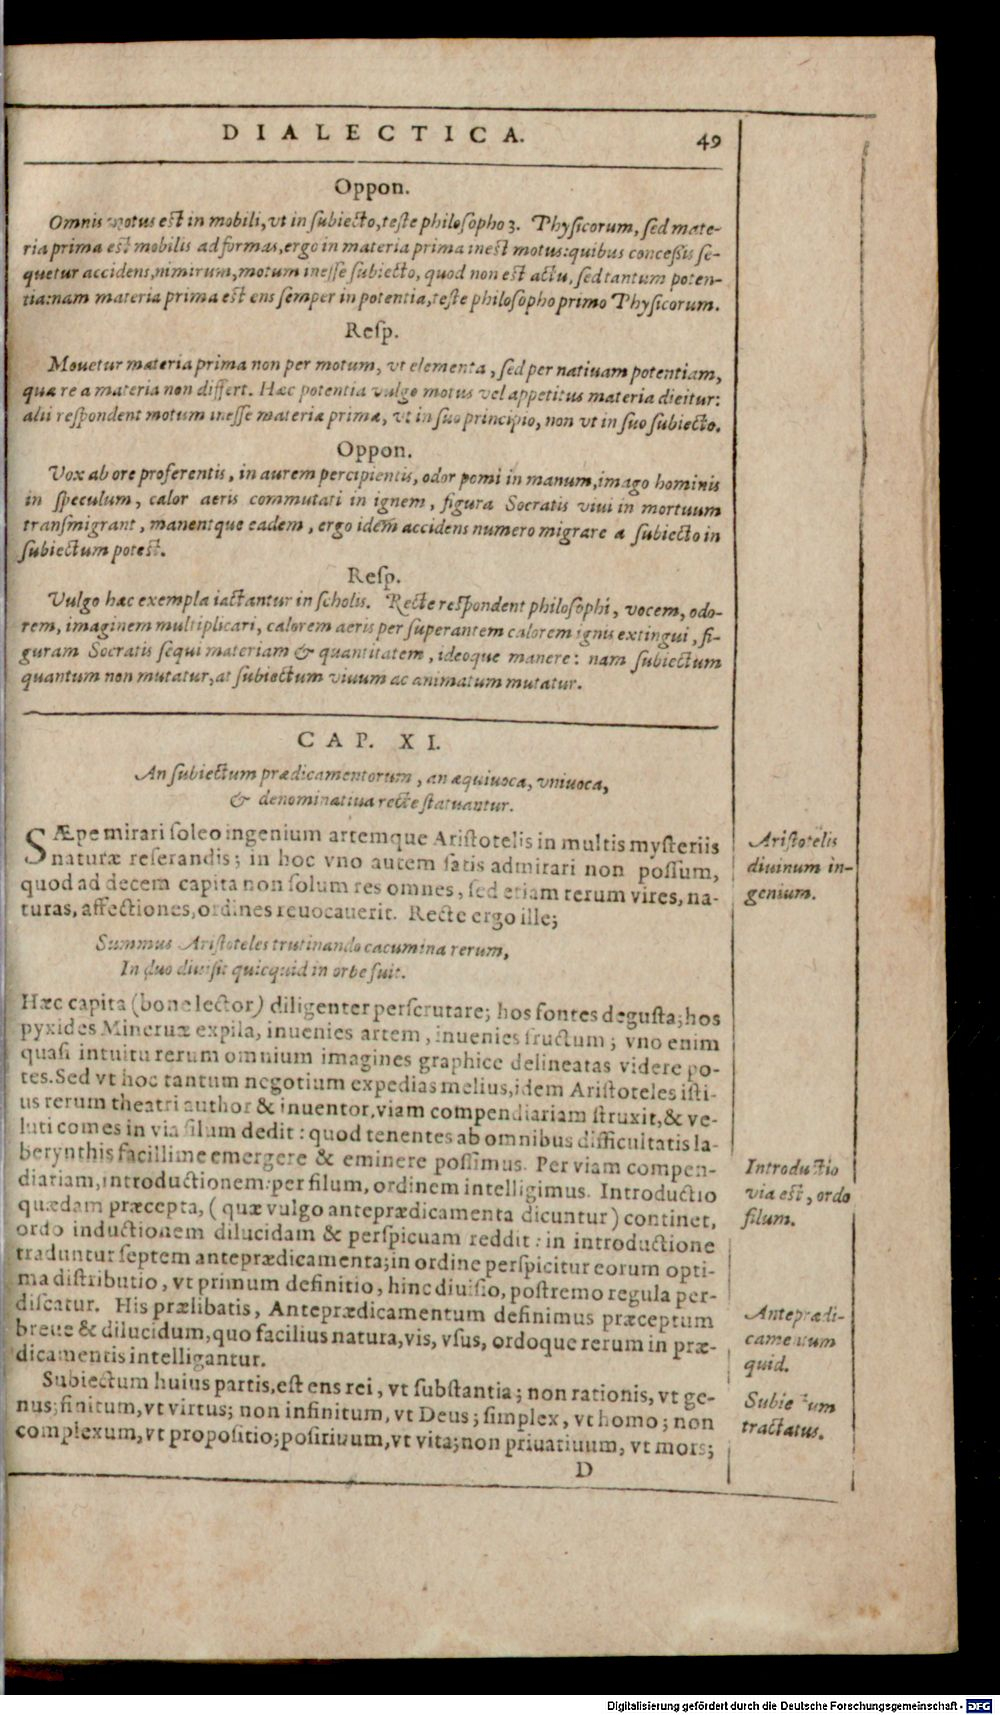 DIALECTICA. 49
Oppon.
Omnis motus est in mobili, vt in subiecto, teste philosopho 3. Physicorum, sed mate-
ria prima est mobilis ad formas, ergo in materia prima inest motus: quibus concessis se-
quetur accidens, nimirum, motum inesse subiecto, quod non est actu, sed tantum poten-
tia: nam materia prima est ens semper in potentia, teste philosopho primo Physicorum.
Resp.
Mouetur materia prima non per motum, vt elementa, sed per natiuam potentiam,
quæ re a materia non differt. Hæc potentia vulgo motus vel appetitus materiæ dicitur:
alii respondent motum inesse materiæ primæ, vt in suo principio, non vt in suo subiecto.
Oppon.
Vox ab ore proferentis, in aurem percipientis, odor pomi in manum, imago hominis
in speculum, calor aeris commutati in ignem, figura Socratis viui in mortuum
transmigrant, manentque eadem, ergo idem accidens numero migrare a subiecto in
subiectum potest.
Resp.
Vulgo hæc exempla iactantur in scholis. Recte respondent philosophi, vocem, odo-
rem, imaginem multiplicari, calorem aeris per superantem calorem ignis extingui, fi-
guram Socratis sequi materiam & quantitatem, ideoque manere: nam subiectum
quantum non mutatur, at subiectum viuum ac animatum mutatur.
CAP. XI.
An subiectum prædicamentorum, an æquiuoca, vniuoca,
& denominatiua recte statuantur.
SÆpe mirari soleo ingenium artemque Aristotelis in multis mysteriis
naturæ reserandis; in hoc vno autem satis admirari non possum,
quod ad decem capita non solum res omnes, sed etiam rerum vires, na-
turas, affectiones, ordines reuocauerit. Recte ergo ille;
Aristotelis
diuinum in-
genium.
Summus Aristoteles trutinando cacumina rerum,
In duo diuisit quicquid in orbe fuit.
Hæc capita (bone lector) diligenter perscrutare; hos fontes degusta; hos
pyxides Mineruæ expila, inuenies artem, inuenies fructum; vno enim
quasi intuitu rerum omnium imagines graphice delineatas videre po-
tes. Sed vt hoc tantum negotium expedias melius, idem Aristoteles isti-
us rerum theatri author & inuentor, viam compendiariam struxit, & ve-
luti comes in via filum dedit: quod tenentes ab omnibus difficultatis la-
berynthis facillime emergere & eminere possimus. Per viam compen-
diariam, introductionem: per filum, ordinem intelligimus. Introductio
quædam præcepta, (quæ vulgo anteprædicamenta dicuntur) continet,
ordo inductionem dilucidam & perspicuam reddit: in introductione
traduntur septem anteprædicamenta; in ordine perspicitur eorum opti-
ma distributio, vt primum definitio, hinc diuisio, postremo regula per-
discatur. His prælibatis, Anteprædicamentum definimus præceptum
breue & dilucidum, quo facilius natura, vis, vsus, ordoque rerum in præ-
dicamentis intelligantur.
Introductio
via est, ordo
filum.
Anteprædi-
camentum
quid.
Subiectum huius partis, est ens rei, vt substantia; non rationis, vt ge-
nus; finitum, vt virtus; non infinitum, vt Deus; simplex, vt homo; non
complexum, vt propositio; positiuum, vt vita; non priuatiuum, vt mors;
Subiectum
tractatus.
D
Digitalisierung gefördert durch die Deutsche Forschungsgemeinschaft - DFG